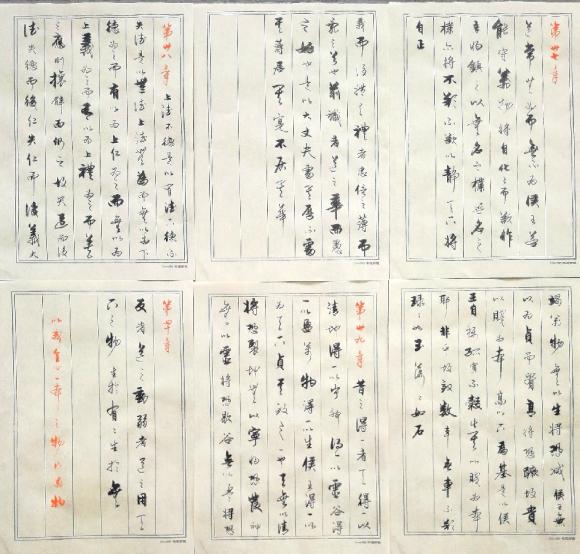 第卅七章
道常無為而無不為侯王若
能守萬物將自化化而欲作
吾將鎮之以無名之樸無名之
樸亦將不欲不欲以靜天下將
自正
第卅八章 上德不德是以有德下德不
失德是以無德上德無為而無以為下
德為之而有以為上仁為之而無以為
上義為之而有以為上禮為之而莫
之應則攘臂而仍之故失道而後
德失德而後仁失仁而後義失
義而後禮夫禮者忠信之薄而
亂之首也前識者道之華而愚
之始也是以大丈夫處其厚不處
其薄居其實不居其華
第卅九章 昔之得一者天得一以
清地得一以寧神得一以靈谷得
一以盈萬物得一以生侯王得一以
為天下貞其致之一也天無以清
將恐裂地無以寧將恐發神
無以靈將恐歇谷無以盈將恐
竭萬物無以生將恐滅侯王無
以為貞而貴高將恐蹶故貴
以賤為本高以下為基是以侯
王自謂孤寡不穀此其以賤為本
耶非乎故致數車無車不欲
琭琭如玉落落如石
第卌章
反者道之動弱者道之用天
下之物生於有有生於無